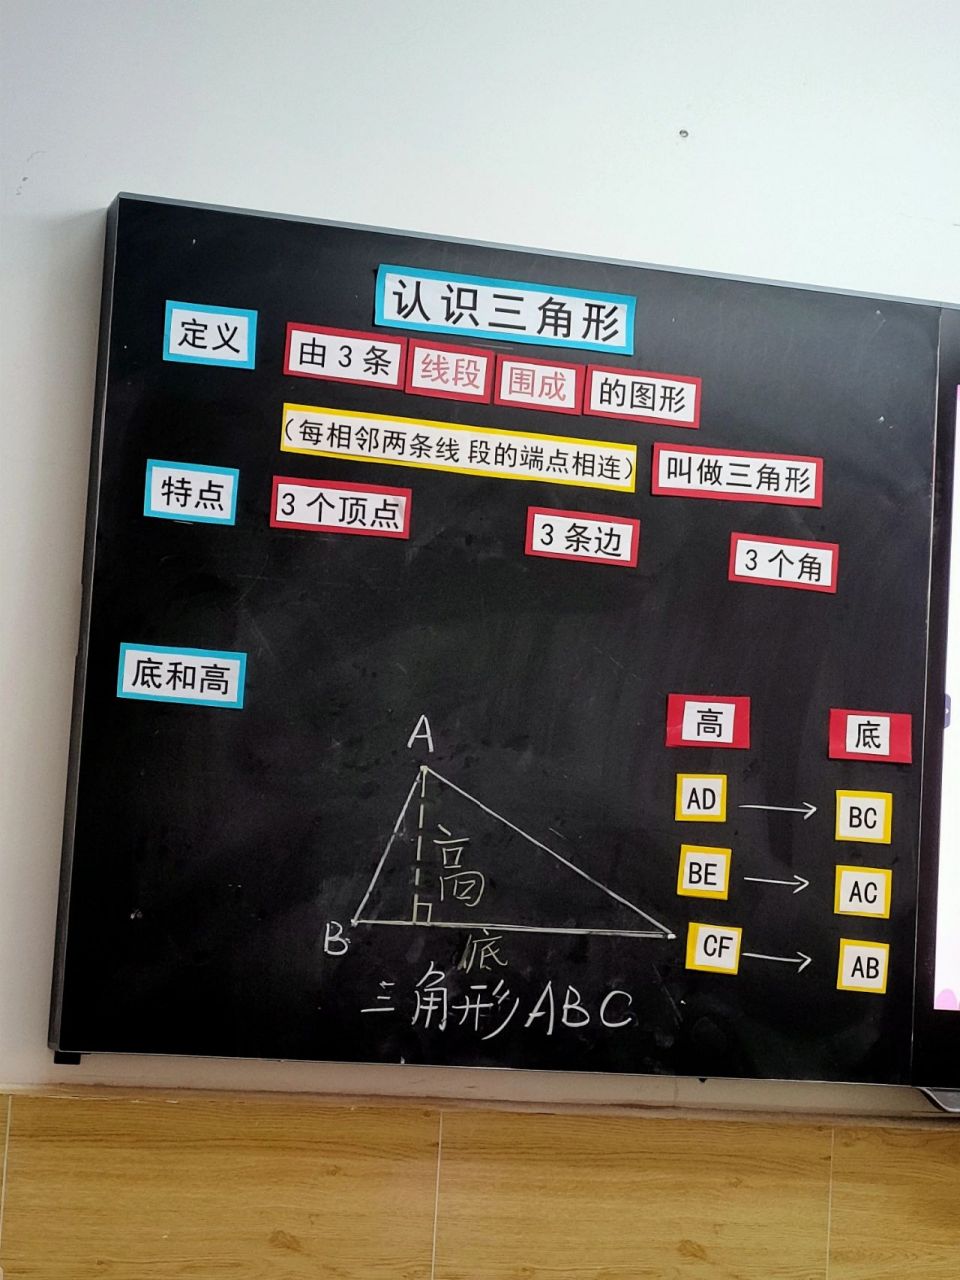 认识三角形
定义 由3条线段围成的图形
（每相邻两条线段的端点相连）叫做三角形
特点 3个顶点 3条边 3个角
底和高
高 底
AD → BC
BE → AC
CF → AB
A
高
B
底
三角形ABC